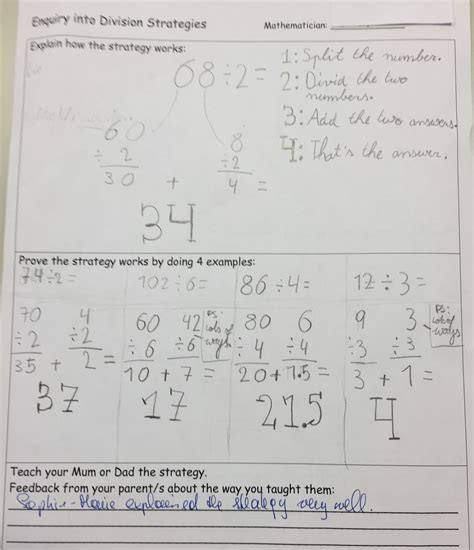 Enquiry into Division Strategies
Mathematician:
Explain how the strategy works:
68÷2=
60
÷2
30
+
8
÷2
4 =
34
1: Split the number.
2: Divid the two
numbers.
3: Add the two answers.
4: That's the answer.
Prove the strategy works by doing 4 examples:
74÷2=
70 4
÷2 ÷2
35 + 2=
37
102÷6=
60 42
÷6 ÷6
10 + 7 =
17
PS:
lots of
ways
86÷4=
80 6
÷4 ÷4
20+1.5=
21.5
12÷3=
9 3
÷3 ÷3
3 + 1=
4
PS:
lots of
ways
Teach your Mum or Dad the strategy.
Feedback from your parent/s about the way you taught them:
Sophie-Marie explained the strategy very well.